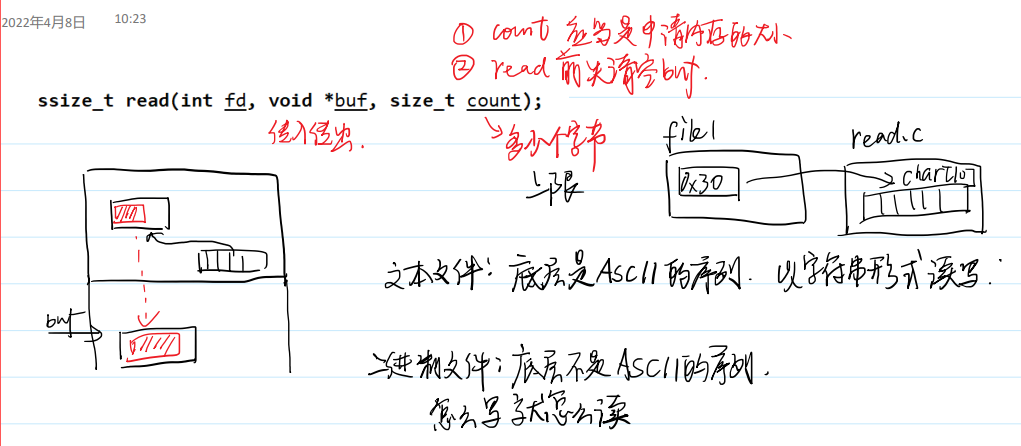 2022年4月8日 10:23
① count 应当是申请内存的大小
② read 前先清空buf.
ssize_t read(int fd, void *buf, size_t count);
传入传出.
多少个字节
上限
file1
0x30
read.c
char[10]
buf
文本文件: 底层是ASCII的序列. 以字符串形式读写.
二进制文件: 底层不是ASCII的序列.
怎么写就怎么读